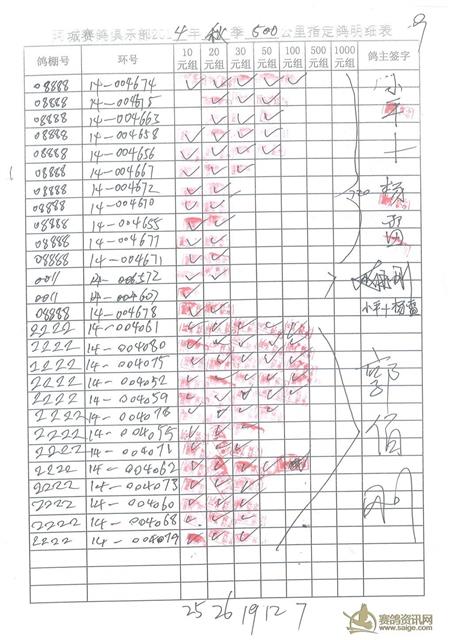 9
赛鸽俱乐部2014年秋季500公里指定鸽明细表
鸽棚号 环号 10元组 20元组 30元组 50元组 100元组 500元组 1000元组 鸽主签字
08888 14-004674 ✓ ✓ ✓ ✓ ✓
08888 14-004675 ✓ ✓ ✓
08888 14-004663 ✓ ✓ ✓
08888 14-004658 ✓ ✓ ✓ ✓
08888 14-004656 ✓ ✓ ✓ ✓
08888 14-004667 ✓ ✓ ✓
08888 14-004672 ✓ ✓
08888 14-004670 ✓ ✓
08888 14-004655 ✓ ✓
08888 14-004677 ✓ ✓
08888 14-004671 ✓ ✓
0011 ✓ ✓
0011 14-004607 ✓
08888 14-004678 ✓ ✓
2222 14-004061 ✓ ✓ ✓ ✓ ✓
2222 14-004080 ✓ ✓ ✓ ✓ ✓
2222 14-004075 ✓ ✓ ✓ ✓ ✓
2222 14-004052 ✓ ✓ ✓ ✓ ✓
2222 14-004059 ✓ ✓ ✓ ✓ ✓
2222 14-004078 ✓ ✓ ✓ ✓
2222 ✓ ✓ ✓
2222 14-004071 ✓ ✓ ✓
2222 14-004062 ✓ ✓ ✓ ✓
2222 14-004073 ✓ ✓ ✓
2222 14-004060 ✓ ✓ ✓
2222 14-004068 ✓ ✓ ✓
2222 14-004079 ✓ ✓ ✓
25 26 19 12 7
赛鸽资讯网
www.saige.com